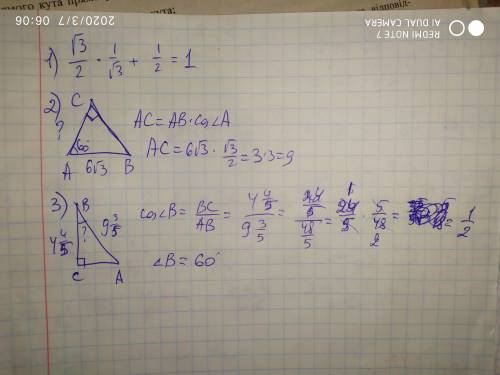 мого кута
кута;
відповід-
2020/3/7 06:06
REDMI NOTE 7
AI DUAL CAMERA
1) √3/2 · 1/√3 + 1/2 = 1
2) C
?
60°
A 6√3 B
AC = AB · cos∠A
AC = 6√3 · √3/2 = 3·3 = 9
3) B
4 4/5
?
9 3/5
C A
cos∠B = BC/AB = (4 4/5)/(9 3/5) = (24/5)/(48/5) = 24/5 · 5/48 = 1/2
1
2
∠B = 60°